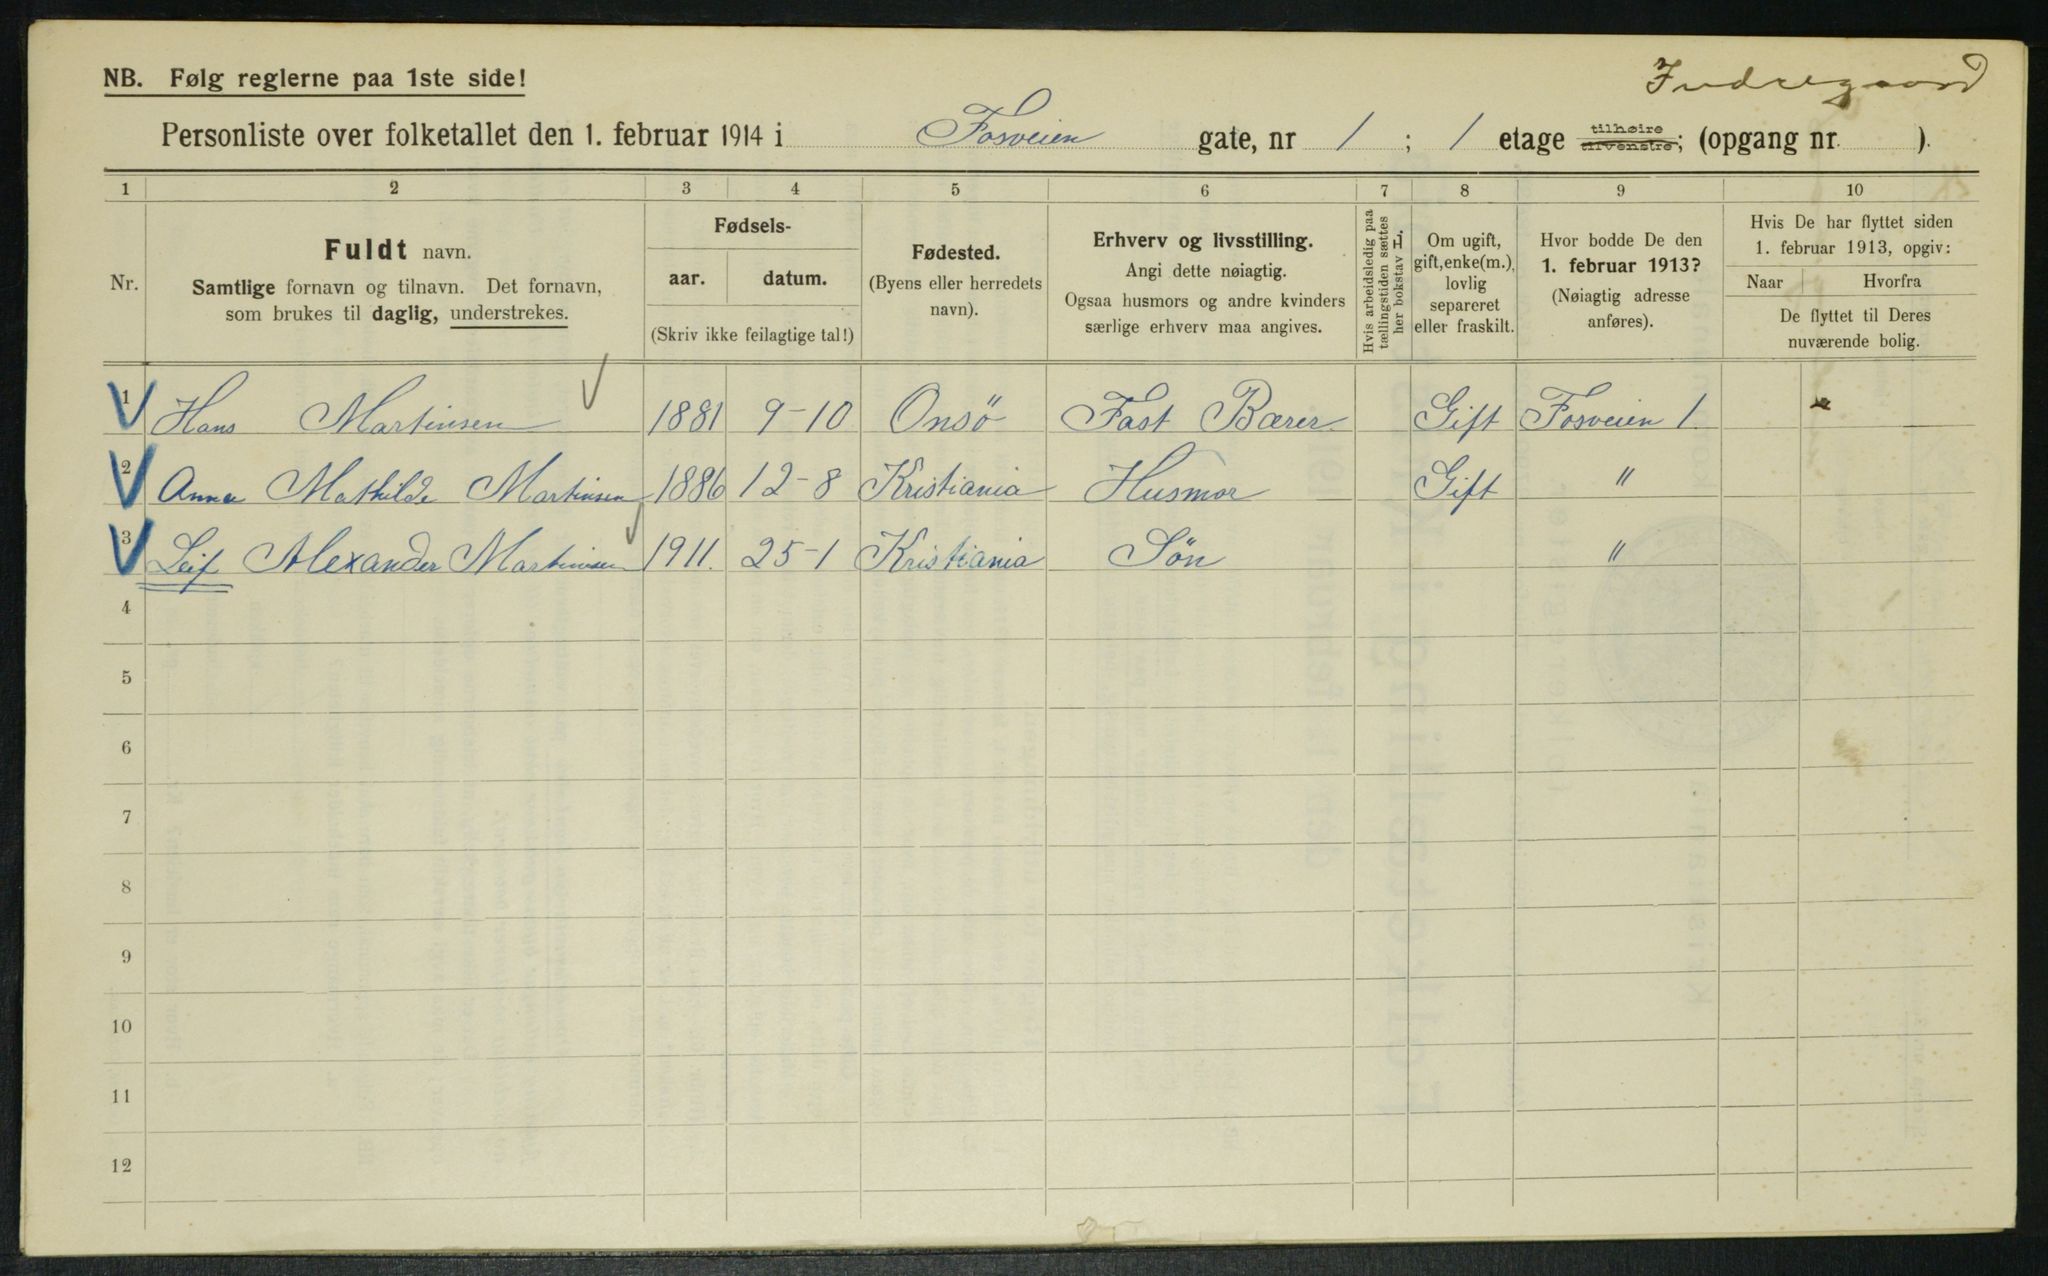 NB. Følg reglerne paa 1ste side!
Indregaard
Personliste over folketallet den 1. februar 1914 i Fosveien gate, nr 1 ; 1 etage tilhøire tilvenstre; (opgang nr. ).
1 2 3 4 5 6 7 8 9 10
Nr.
Fuldt navn.
Samtlige fornavn og tilnavn. Det fornavn,
som brukes til daglig, understrekes.
Fødsels-
aar. datum.
(Skriv ikke feilagtige tal!)
Fødested.
(Byens eller herredets
navn).
Erhverv og livsstilling.
Angi dette nøiagtig.
Ogsaa husmors og andre kvinders
særlige erhverv maa angives.
Hvis arbeidsledig paa
tællingstiden sættes
her bokstav L.
Om ugift,
gift, enke(m.),
lovlig
separeret
eller fraskilt.
Hvor bodde De den
1. februar 1913?
(Nøiagtig adresse
anføres).
Hvis De har flyttet siden
1. februar 1913, opgiv:
Naar Hvorfra
De flyttet til Deres
nuværende bolig.
1 Hans Martinsen 1881 9-10 Onsö Fast Bærer Gift Fosveien 1.
2 Anna Mathilde Martinsen 1886 12-8 Kristiania Husmor Gift "
3 Leif Alexander Martinsen 1911. 25-1 Kristiania Sön "
4
5
6
7
8
9
10
11
12